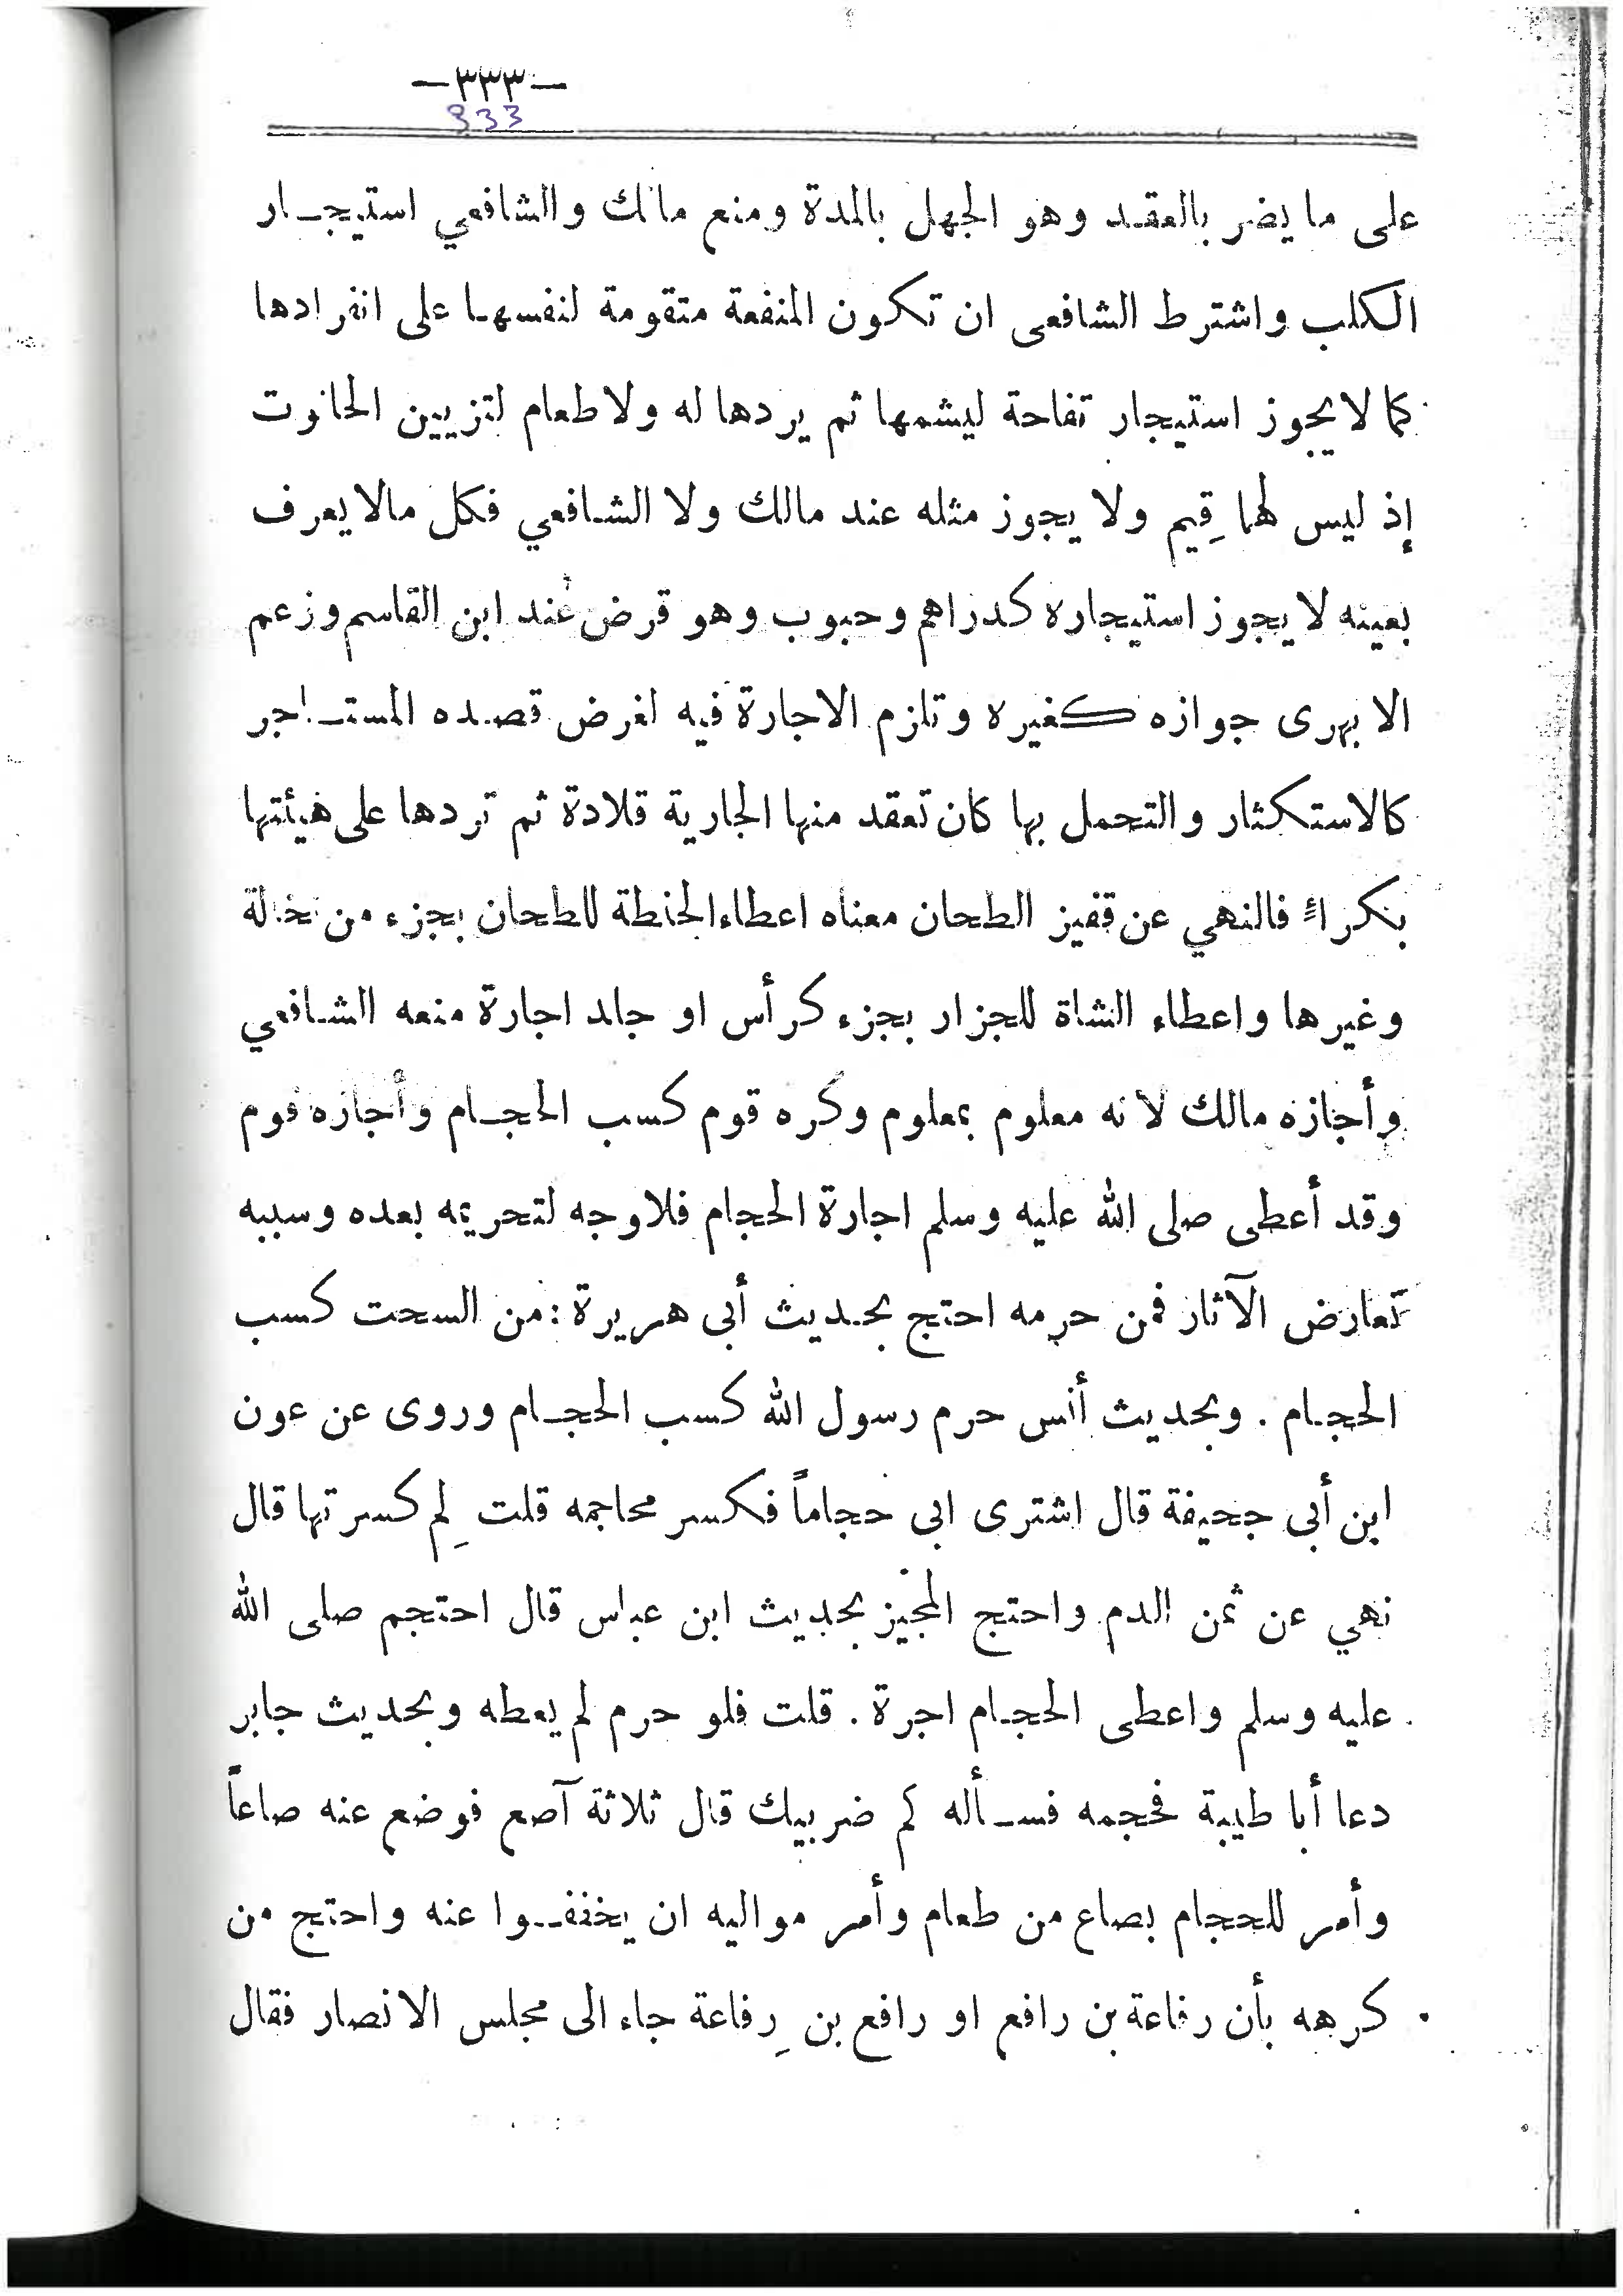 —٣٣٣—
333
على ما يضر بالعقد وهو الجهل بالمدة ومنع مالك والشافعي استيجار
الكلب واشترط الشافعى ان تكون المنفعة متقومة لنفسها على انفرادها
كما لا يجوز استيجار تفاحة ليشمها ثم يردها له ولا طعام لتزيين الحانوت
إذ ليس لهما قِيم ولا يجوز مثله عند مالك ولا الشافعي فكل مالا يعرف
بعينه لا يجوز استيجاره كدراهم وحبوب وهو قرض عند ابن القاسم وزعم
الابهرى جوازه كغيره وتلزم الاجارة فيه لغرض قصده المستاجر
كالاستكثار والتحمل بها كان تعقد منها الجارية قلادة ثم تردها على هيئتها
بنكراءً فالنهي عن قفيز الطحان معناه اعطاء الحنطة للطحان بجزء من نخالة
وغيرها واعطاء الشاة للجزار بجزء كرأس او جلد اجارة منعه الشافعي
وأجازه مالك لانه معلوم بمعلوم وكره قوم كسب الحجام وأجازه قوم
وقد أعطى صلى الله عليه وسلم اجارة الحجام فلا وجه لتحريمه بعده وسببه
تعارض الآثار فمن حرمه احتج بحديث أبى هريرة : من السحت كسب
الحجام . وبحديث أنس حرم رسول الله كسب الحجام وروى عن عون
ابن أبى جحيفة قال اشترى ابى حجاماً فكسر محاجمه قلت لِم كسرتها قال
نهي عن ثمن الدم واحتج المجيز بحديث ابن عباس قال احتجم صلى الله
عليه وسلم واعطى الحجام اجرة . قلت فلو حرم لم يعطه وبحديث جابر
دعا أبا طيبة فحجمه فسأله كم ضربيك قال ثلاثة آصع فوضع عنه صاعاً
وأمر للحجام بصاع من طعام وأمر مواليه ان يخففوا عنه واحتج من
كرهه بأن رفاعة بن رافع او رافع بن رِفاعة جاء الى مجلس الانصار فقال